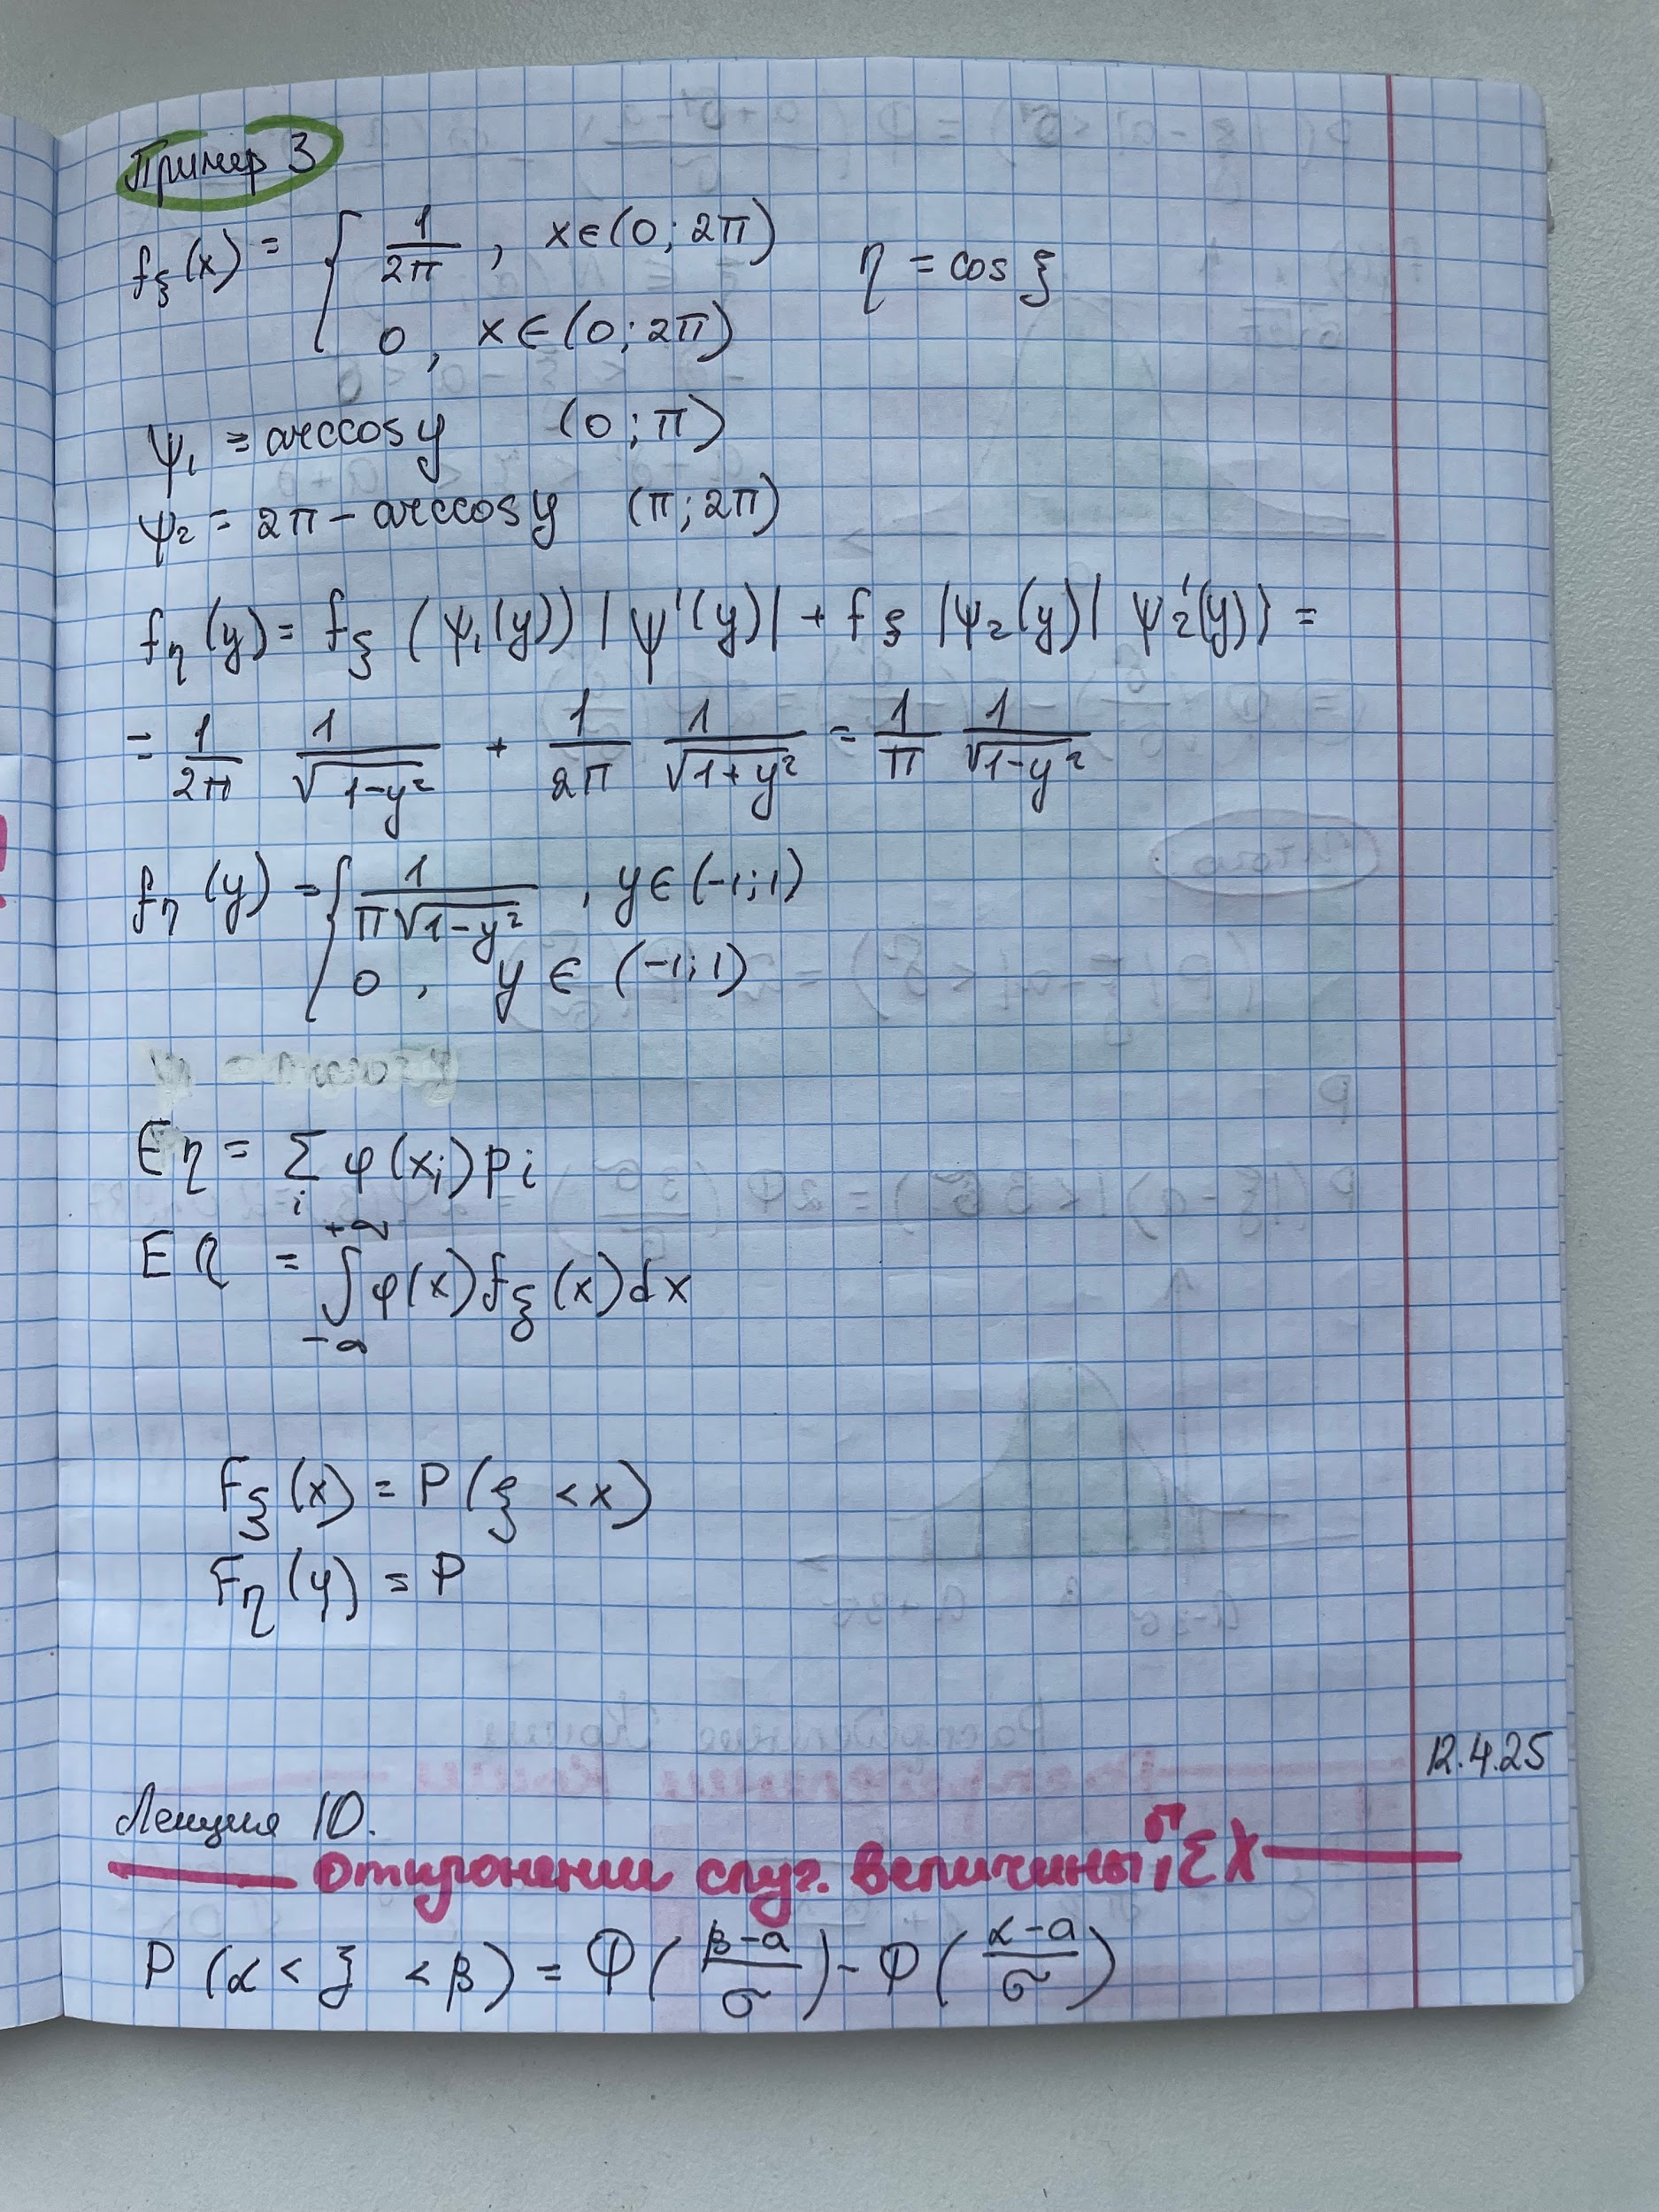 Пример 3
f_ξ(x) = { 1/2π, x∈(0; 2π)
0, x∈(0; 2π)
η = cos ξ
ψ₁ = arccos y (0; π)
ψ₂ = 2π - arccos y (π; 2π)
f_η(y) = f_ξ (ψ₁(y)) |ψ'(y)| + f_ξ |ψ₂(y)| ψ₂'(y)) =
= 1/2π 1/√(1-y²) + 1/2π 1/√(1+y²) = 1/π 1/√(1-y²)
f_η(y) = { 1/(π√(1-y²)), y∈(-1; 1)
0, y ∈ (-1; 1)
Eη = Σ_i φ(x_i) p i
Eη = ∫_{-∞}^{+∞} φ(x) f_ξ(x) dx
F_ξ(x) = P(ξ < x)
F_η(y) = P
12.4.25
Лекция 10.
отклонении случ. величины
P(α < ξ < β) = Φ((β-a)/σ) - Φ((α-a)/σ)